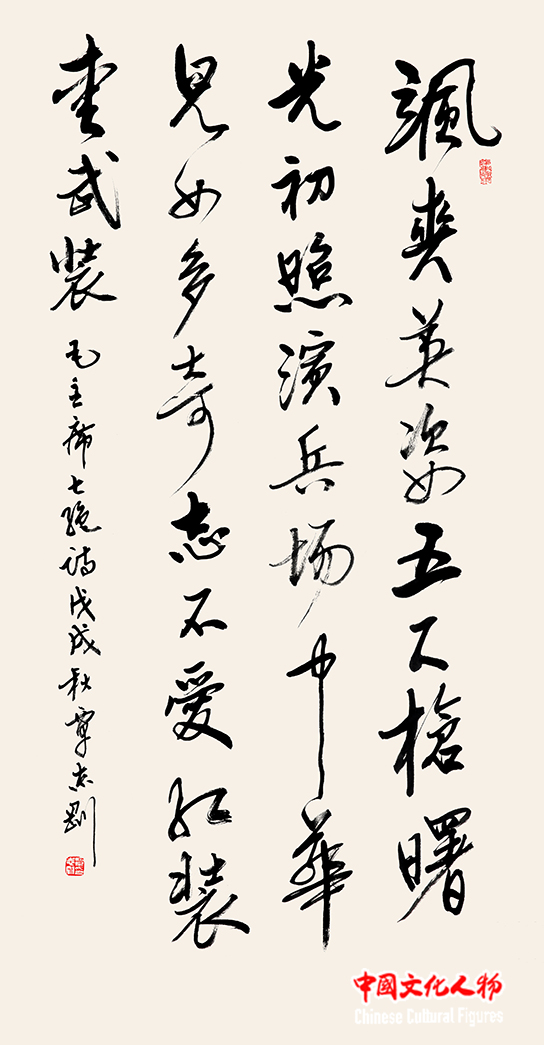 颯爽英姿五尺槍曙
光初照演兵場中華
兒女多奇志不愛紅装
愛武装
毛主席七絶詩戊戌秋覃志剛
中國文化人物
Chinese Cultural Figures